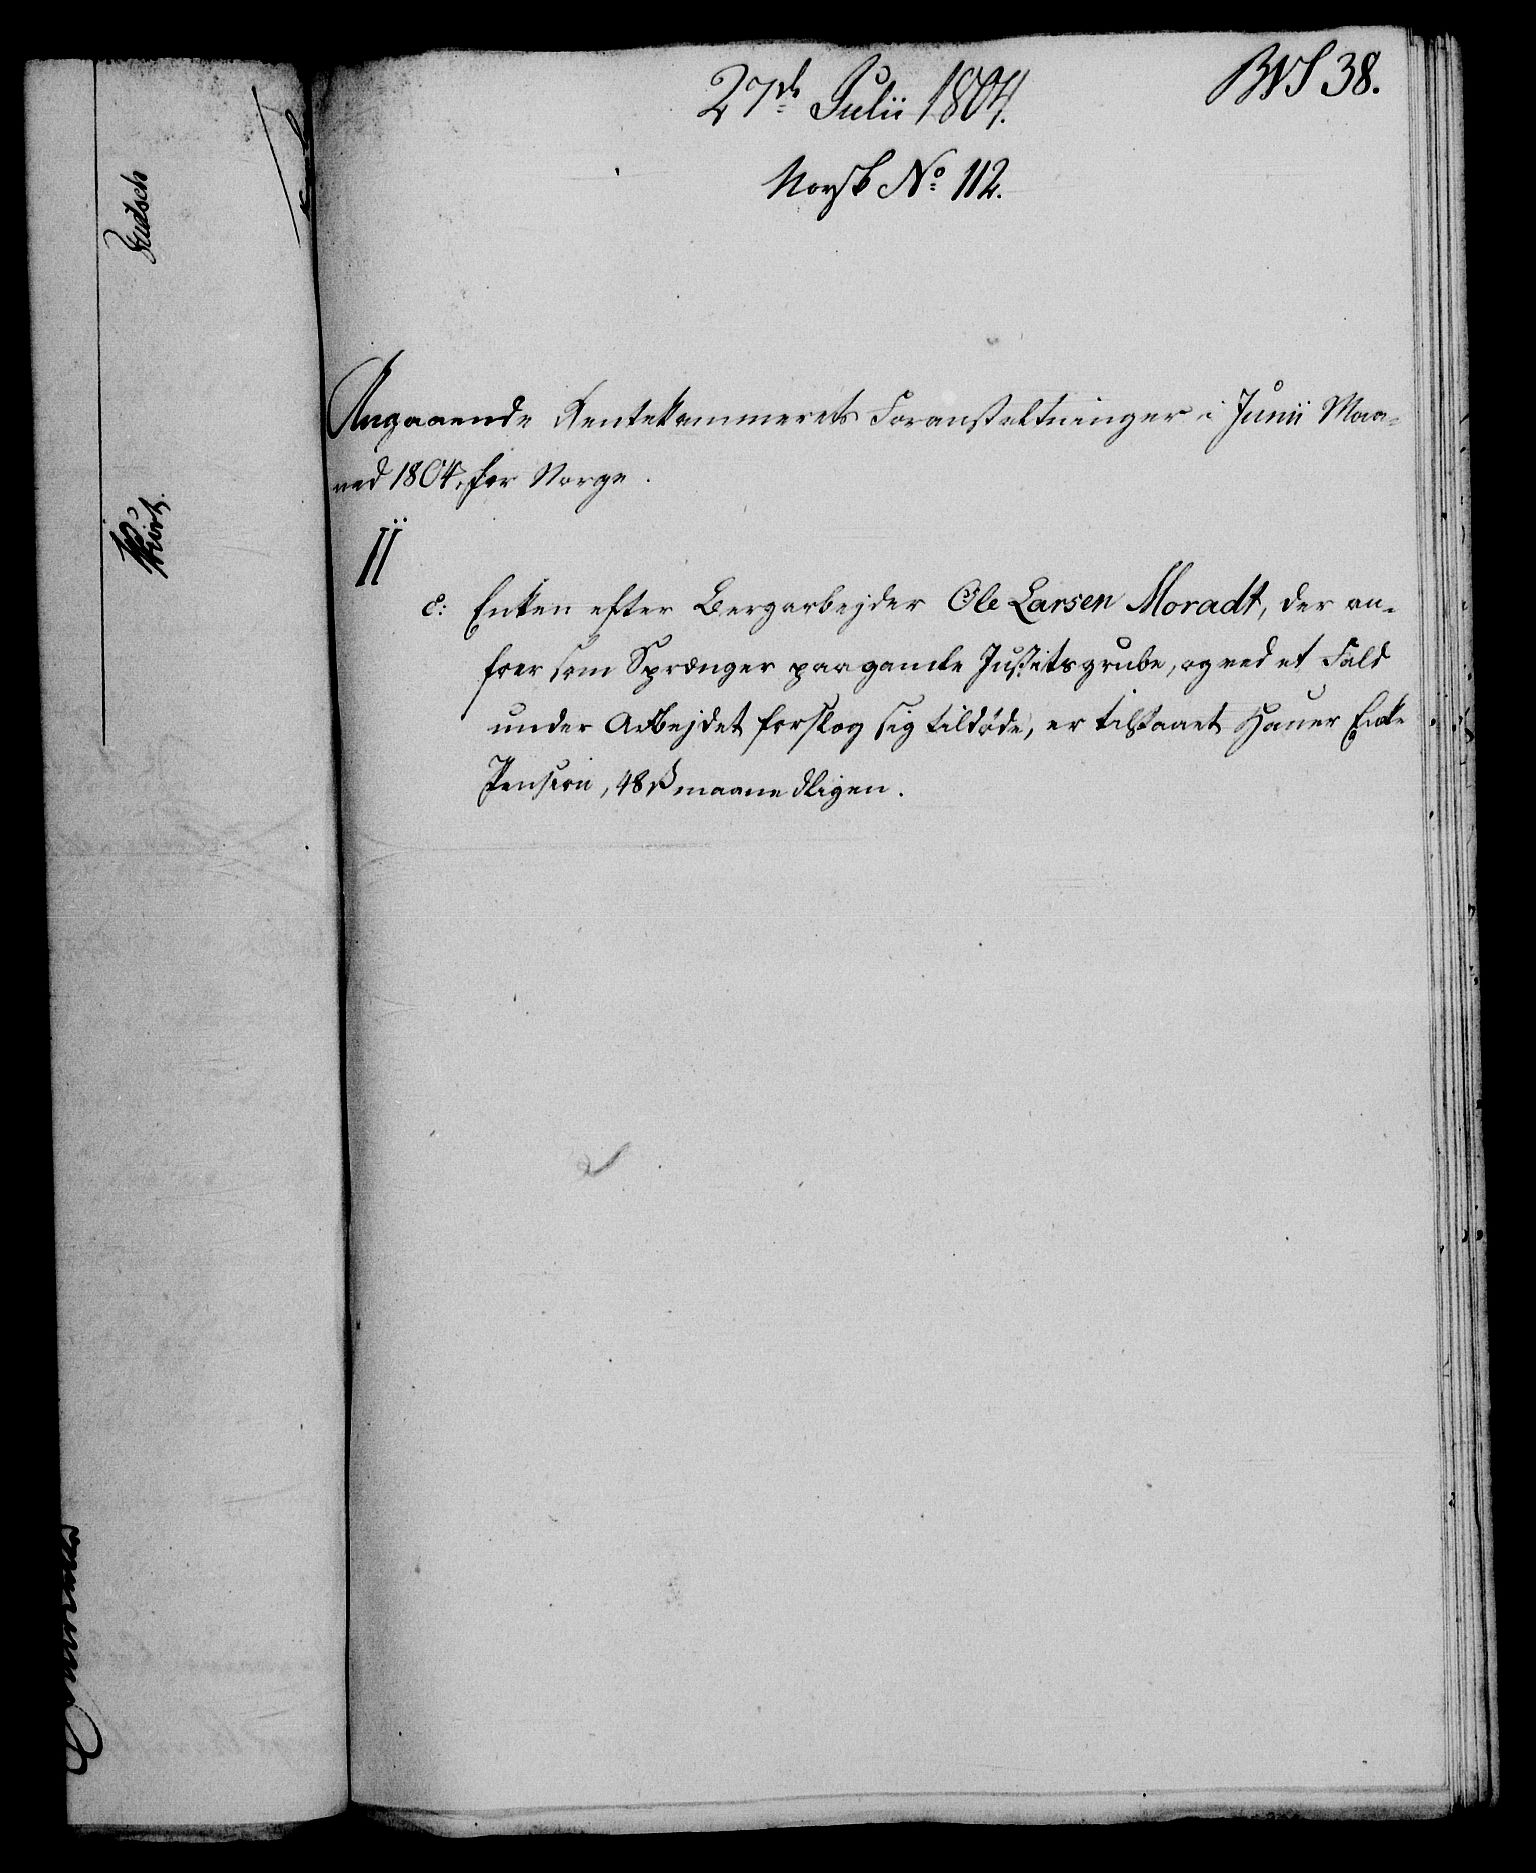 27de Julii 1804.
BVS 38.
Norsk No 112.
Angaaende Rentekammerets Foranstaltninger i Junii Maa-
ned 1804, for Norge.
II
c: Enken efter Bergarbejder Ole Larsen Moradt, der an-
foer som Sprænger paa gamle Justitsgrube, og ved et Fald
under Arbejdet forslog sig tildøde, er tilstaaet Hauer Enke
Pension, 48 ß maanedligen.